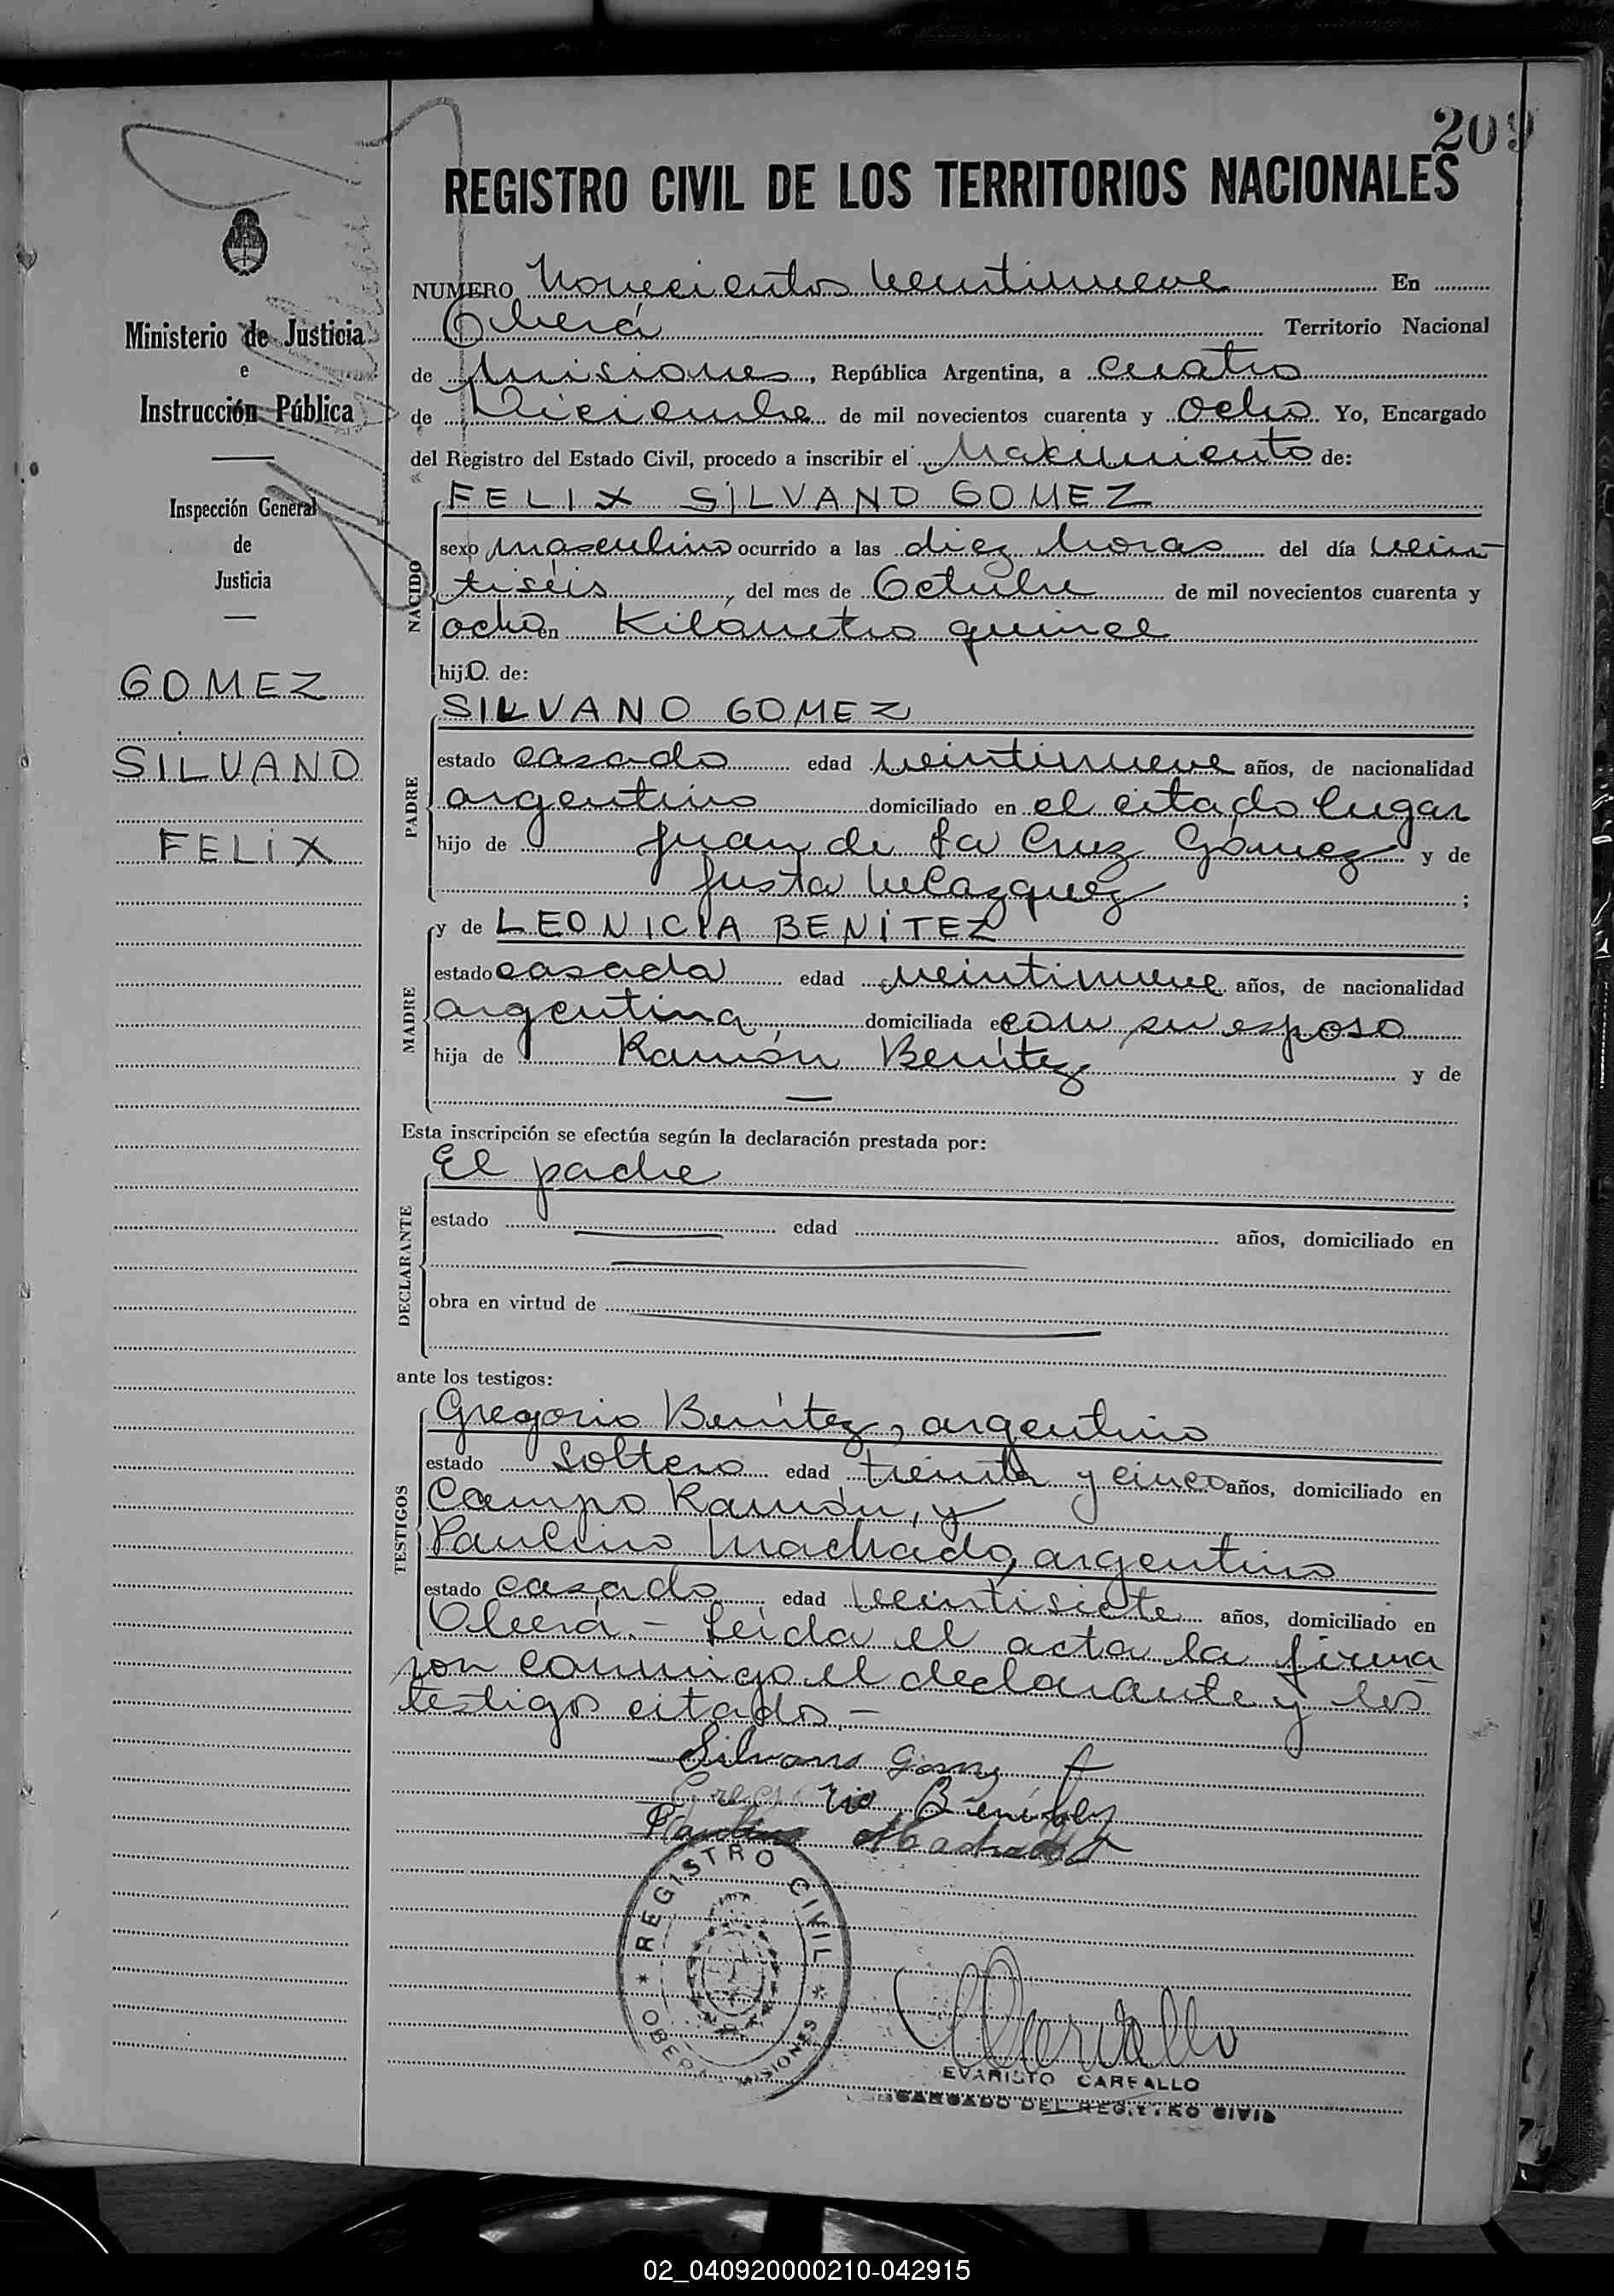 209
REGISTRO CIVIL DE LOS TERRITORIOS NACIONALES
Ministerio de Justicia
e
Instrucción Pública
Inspección General
de
Justicia
GOMEZ
SILVANO
FELIX
NUMERO Novecientos veintinueve En
Oberá Territorio Nacional
de Misiones, República Argentina, a cuatro
de Diciembre de mil novecientos cuarenta y ocho Yo, Encargado
del Registro del Estado Civil, procedo a inscribir el Nacimiento de:
NACIDO
FELIX SILVANO GOMEZ
sexo masculino ocurrido a las diez horas del día vein
tiséis, del mes de Octubre de mil novecientos cuarenta y
ocho en Kilómetro quince
hijo de:
PADRE
SILVANO GOMEZ
estado casado edad veintinueve años, de nacionalidad
argentino domiciliado en el citado lugar
hijo de Juan de la Cruz Gómez y de
Justa Velazquez ;
MADRE
y de LEONICIA BENITEZ
estado casada edad veintinueve años, de nacionalidad
argentina domiciliada con su esposo
hija de Ramón Benítez y de
—
Esta inscripción se efectúa según la declaración prestada por:
DECLARANTE
El padre
estado edad años, domiciliado en
obra en virtud de
ante los testigos:
TESTIGOS
Gregorio Benítez, argentino
estado soltero edad treinta y cinco años, domiciliado en
Campo Ramón, y
Paulino Machado, argentino
estado casado edad veintisiete años, domiciliado en
Oberá.- Leída el acta la firma
ron conmigo el declarante y los
testigos citados.-
Silvano Gomez
Gregorio Benitez
Paulino Machado
REGISTRO CIVIL
OBERA MISIONES
Carvallo
EVARISTO CARVALLO
ENCARGADO DEL REGISTRO CIVIL
02_040920000210-042915